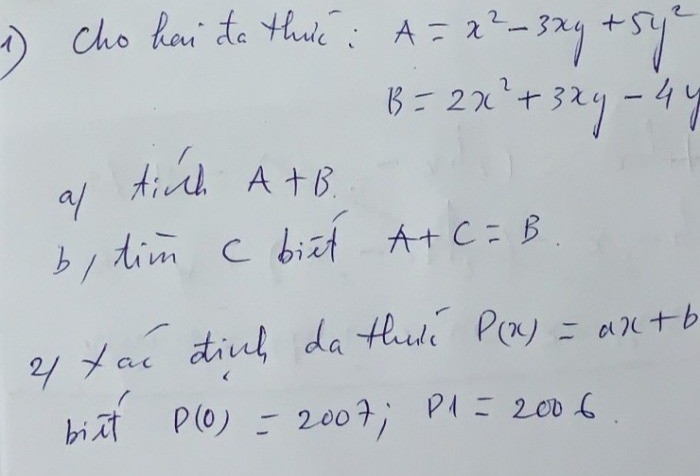 1) Cho hai đa thức: A = x² - 3xy + 5y²
B = 2x² + 3xy - 4y
a/ tính A + B.
b, tìm C biết A + C = B.
2/ Xác định đa thức P(x) = ax + b
biết P(0) = 2007; P1 = 2006.